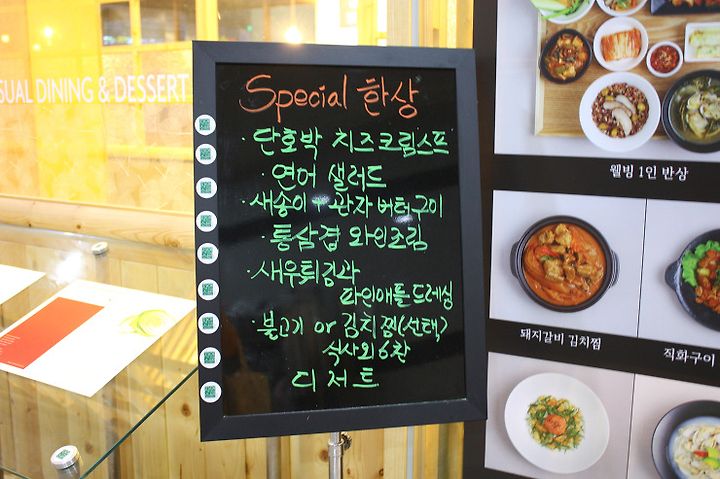 SUAL DINING & DESSERT
Special 한상
· 단호박 치즈크림스프
· 연어 샐러드
· 새송이 + 관자 버터구이
· 통살겹 와인조림
· 새우튀김과
파인애플드레싱
· 불고기 or 김치찜(선택)
식사외6찬
디저트
웰빙 1인 반상
돼지갈비 김치찜
직화구이